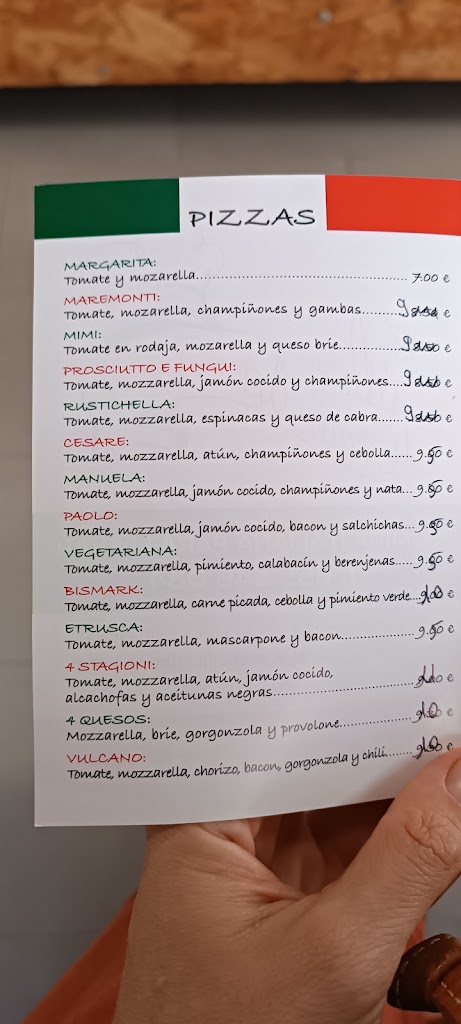 PIZZAS
MARGARITA:
Tomate y mozarella........ 7.00 €
MAREMONTI:
Tomate, mozarella, champiñones y gambas........ 9 €
MIMI:
Tomate en rodaja, mozarella y queso brie........ 9 €
PROSCIUTTO E FUNGUI:
Tomate, mozzarella, jamón cocido y champiñones.... 9 €
RUSTICHELLA:
Tomate, mozzarella, espinacas y queso de cabra....... 9 €
CESARE:
Tomate, mozzarella, atún, champiñones y cebolla...... 9.50 €
MANUELA:
Tomate, mozzarella, jamón cocido, champiñones y nata... 9.50 €
PAOLO:
Tomate, mozzarella, jamón cocido, bacon y salchichas... 9.50 €
VEGETARIANA:
Tomate, mozzarella, pimiento, calabacín y berenjenas..... 9.50 €
BISMARK:
Tomate, mozzarella, carne picada, cebolla y pimiento verde... €
ETRUSCA:
Tomate, mozzarella, mascarpone y bacon........ 9.50 €
4 STAGIONI:
Tomate, mozzarella, atún, jamón cocido,
alcachofas y aceitunas negras........ €
4 QUESOS:
Mozzarella, brie, gorgonzola y provolone........ €
VULCANO:
Tomate, mozzarella, chorizo, bacon, gorgonzola y chili....... €